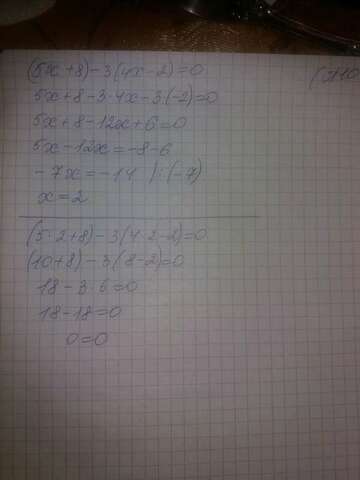 (5x+8)-3(4x-2)=0
5x+8-3·4x-3·(-2)=0
5x+8-12x+6=0
5x-12x=-8-6
-7x=-14 |:(-7)
x=2
(5·2+8)-3(4·2-2)=0
(10+8)-3(8-2)=0
18-3·6=0
18-18=0
0=0